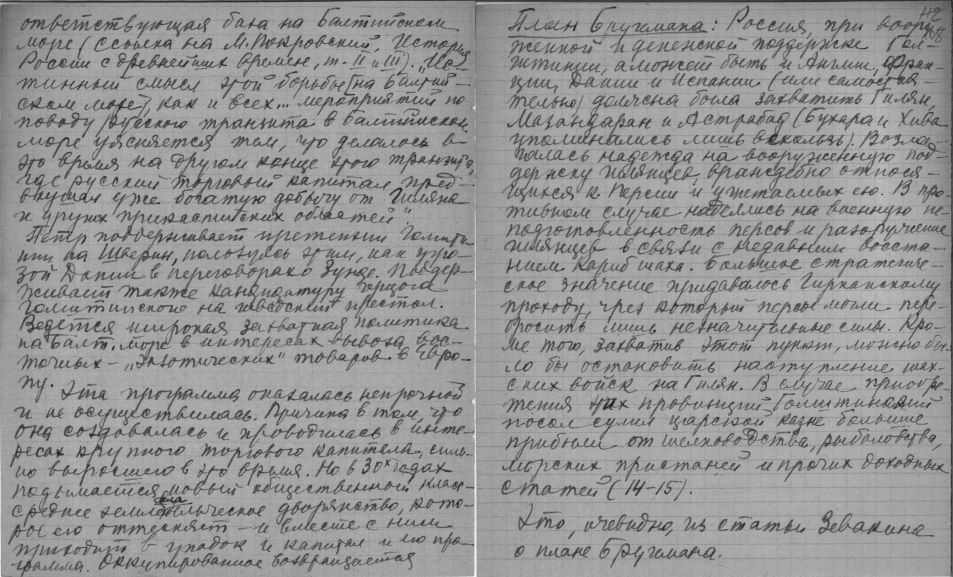 ответствующая база на Балтийском
море (ссылка на М. Покровский, История
России с древнейших времен, т. II и III). "Ис-
тинный смысл этой борьбы (на Балтий-
ском море), как и всех... мероприятий по
поводу русского транзита в Балтийском
море уясняется тем, что делалось в
это время на другом конце этого транзита,
где русский торговый капитал пред-
вкушал уже богатую добычу от Гиляна
и других прикаспийских областей"
Петр поддерживает претензии Голшти-
нии на Шверин, пользуясь этим, как угро-
зой Дании в переговорах о Зунде. Поддер-
живает также кандидатуру герцога
Голштинского на шведский престол.
Ведется широкая захватная политика
на Балт. море в интересах вывоза вос-
точных - "экзотических" товаров в Евро-
пу.
Эта программа оказалась непрочной
и не осуществилась. Причина в том, что
она создавалась и проводилась в инте-
ресах крупного торгового капитала, силь-
но выросшего в это время. Но в 30х годах
подымается новый общественный класс -
среднее землевладельческое дворянство, кото-
рое его оттесняет - и вместе с ним
приходит в упадок и капитал и его про-
грамма. Оккупированное возвращается
42
План Бругмана: Россия, при воору-
женной и денежной поддержке Гол-
штинии, а может быть и Англии, Фран-
ции, Дании и Испании (или самостоя-
тельно) должна была захватить Гилян,
Мазандаран и Астрабад (Бухара и Хива
упоминались лишь вскользь). Возла-
галась надежда на вооруженную под-
держку гилянцев, враждебно относя-
щихся к Персии и угнетаемых ею. В про-
тивном случае надеялись на военную не
подготовленность персов и разоружение
гилянцев в связи с недавним восста-
нием Кариб шаха. Большое стратегиче-
ское значение придавалось Гирканскому
проходу, чрез который персы могли пере-
бросить лишь незначительные силы. Кро-
ме того, захватив этот пункт, можно бы-
ло бы остановить наступление шах-
ских войск на Гилян. В случае приобре-
тения этих провинций Голштинский
посол сулил царской казне большие
прибыли от шелководства, рыболовства,
морских пристаней и прочих доходных
статей (14-15).
Это, очевидно, из статьи Зевакина
о плане Бругмана.